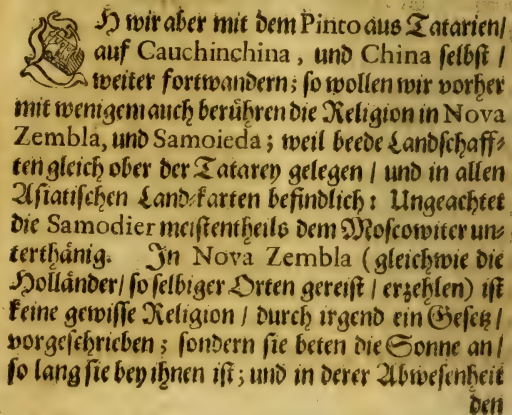 EH wir aber mit dem Pinto aus Tatarien/
auf Cauchinchina, und China selbst /
weiter fortwandern; so wollen wir vorher
mit wenigem auch berühren die Religion in Nova
Zembla, und Samoieda; weil beede Landschaff-
ten gleich ober der Tatarey gelegen / und in allen
Asiatischen Land-karten befindlich: Ungeachtet
die Samodier meistentheils dem Moscowiter un-
terthänig. In Nova Zembla (gleichwie die
Holländer/ so selbiger Orten gereist / erzehlen) ist
keine gewisse Religion / durch irgend ein Gesetz /
vorgeschrieben; sondern sie beten die Sonne an/
so lang sie bey ihnen ist; und in derer Abwesenheit
den